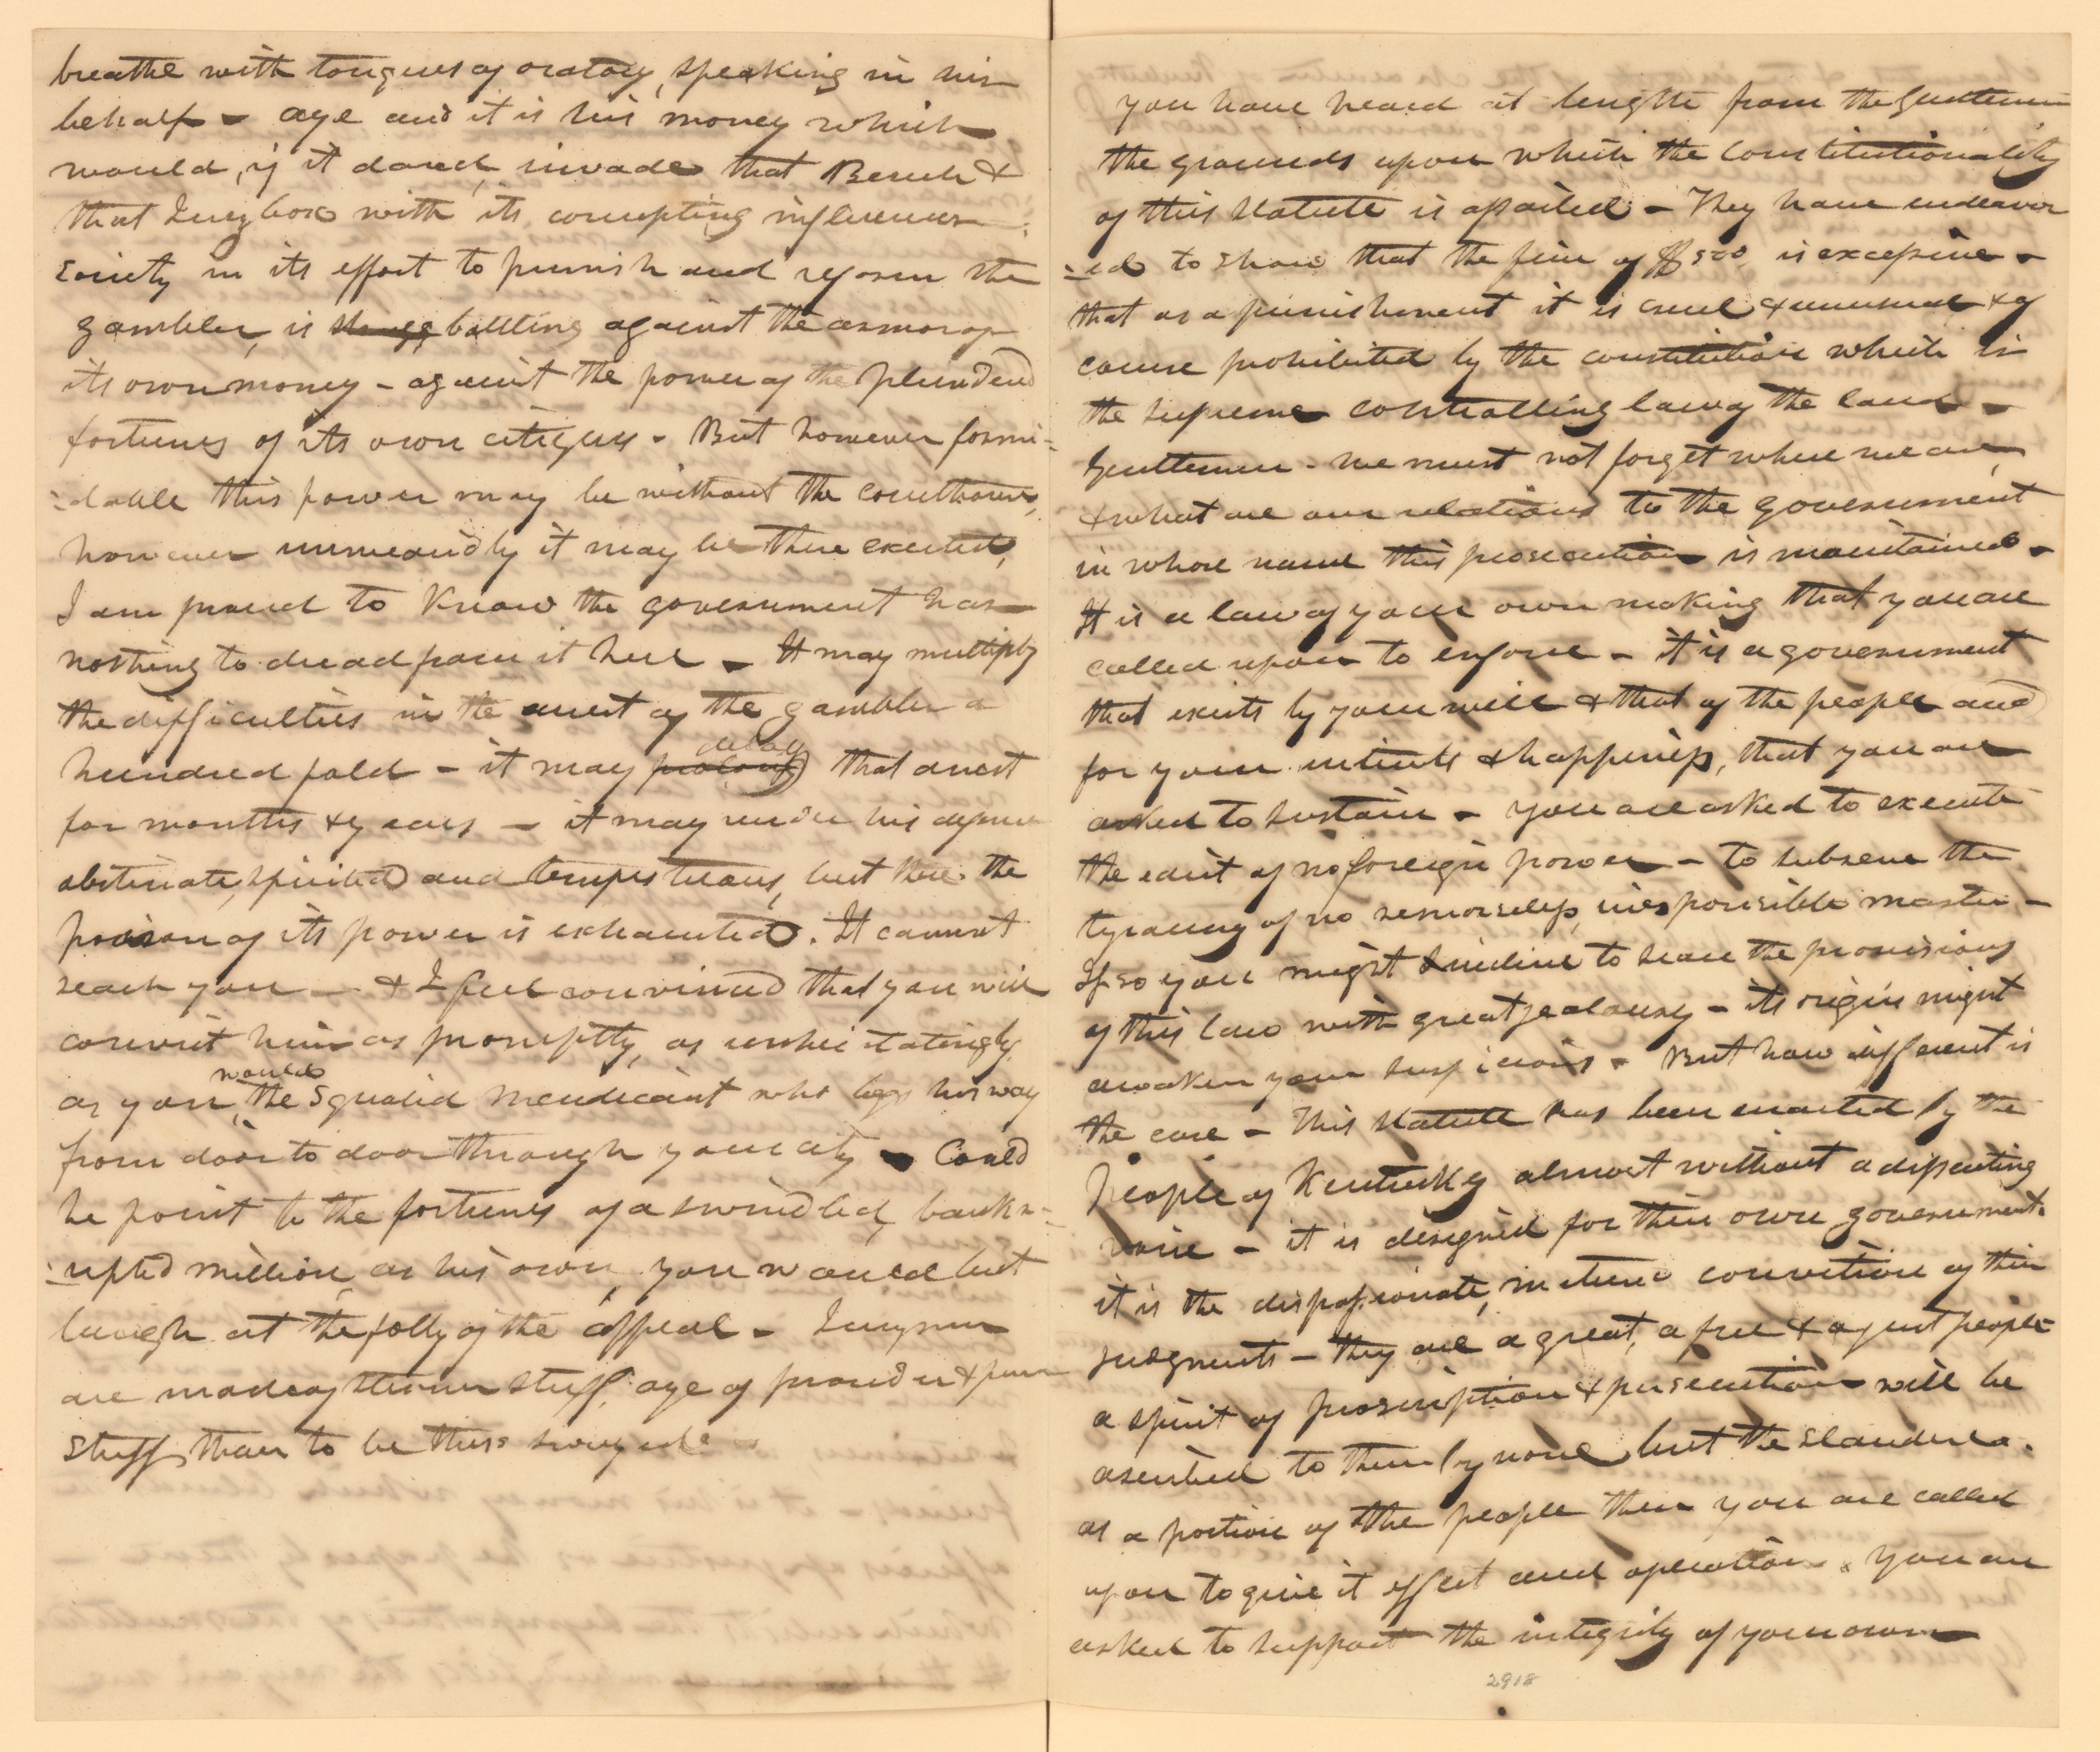 breathe with tongues of oratory, speaking in his
behalf - aye and it is his money which
would, if it dared, invade that Bench &
that Jury box with its corrupting influences.
Society in its effort to punish and reform the
gambler, is strugg battling against the armor of
its own money - against the power of the plundered
fortunes of its own citizens. But however formi-
-dable this power may be without the courthouse,
however unweariedly it may be there exerted,
I am proud to know the government has
nothing to dread from it here - It may multiply
the difficulties in the arrest of the gambler a
delay
hundred fold - it may prolong that arrest
for months & years - it may render his defence
obstinate, spirited and tempestuous, but there the
poison of its power is exhausted. It cannot
reach you - & I feel convinced that you will
convict him as promptly, as unhesitatingly
would
as you the squalid mendicant who begs his way
from door to door through your city - Could
he point to the fortunes of a swindled, bankr-
-upted million, as his own, you would but
laugh at the folly of the appeal - Jurymen
are made of sterner stuff, aye of prouder & purer
stuff, than to be thus swayed.
you have heard at length from the Gentlemen
the grounds upon which the constitutionality
of this statute is assailed - They have endeavor
-ed to show that the fine of $500 is excessive -
that as a punishment it is cruel & unusual & of
course prohibited by the constitution which is
the supreme controlling law of the land -
Gentlemen - we must not forget where we are,
& what are our relations to the government
in whose name this prosecution is maintained -
It is a law of your own making that you are
called upon to enforce - it is a government
that exists by your will & that of the people and
for your interests & happiness, that you are
asked to sustain - you are asked to execute
the edict of no foreign power - to subserve the
tyranny of no remorseless, irresponsible master -
If so you might incline to scan the provisions
of this law with great jealousy - its origin might
awaken your suspicions - But how different is
the case - This statute has been enacted by the
people of Kentucky almost without a dissenting
voice - it is designed for their own government.
it is the dispassionate, mature conviction of their
judgments - they are a great, a free & a just people
a spirit of proscription & persecution will be
ascribed to them by none but the slanderer.
as a portion of the people then you are called
upon to give it effect and operation. You are
asked to support the integrity of your own
2918